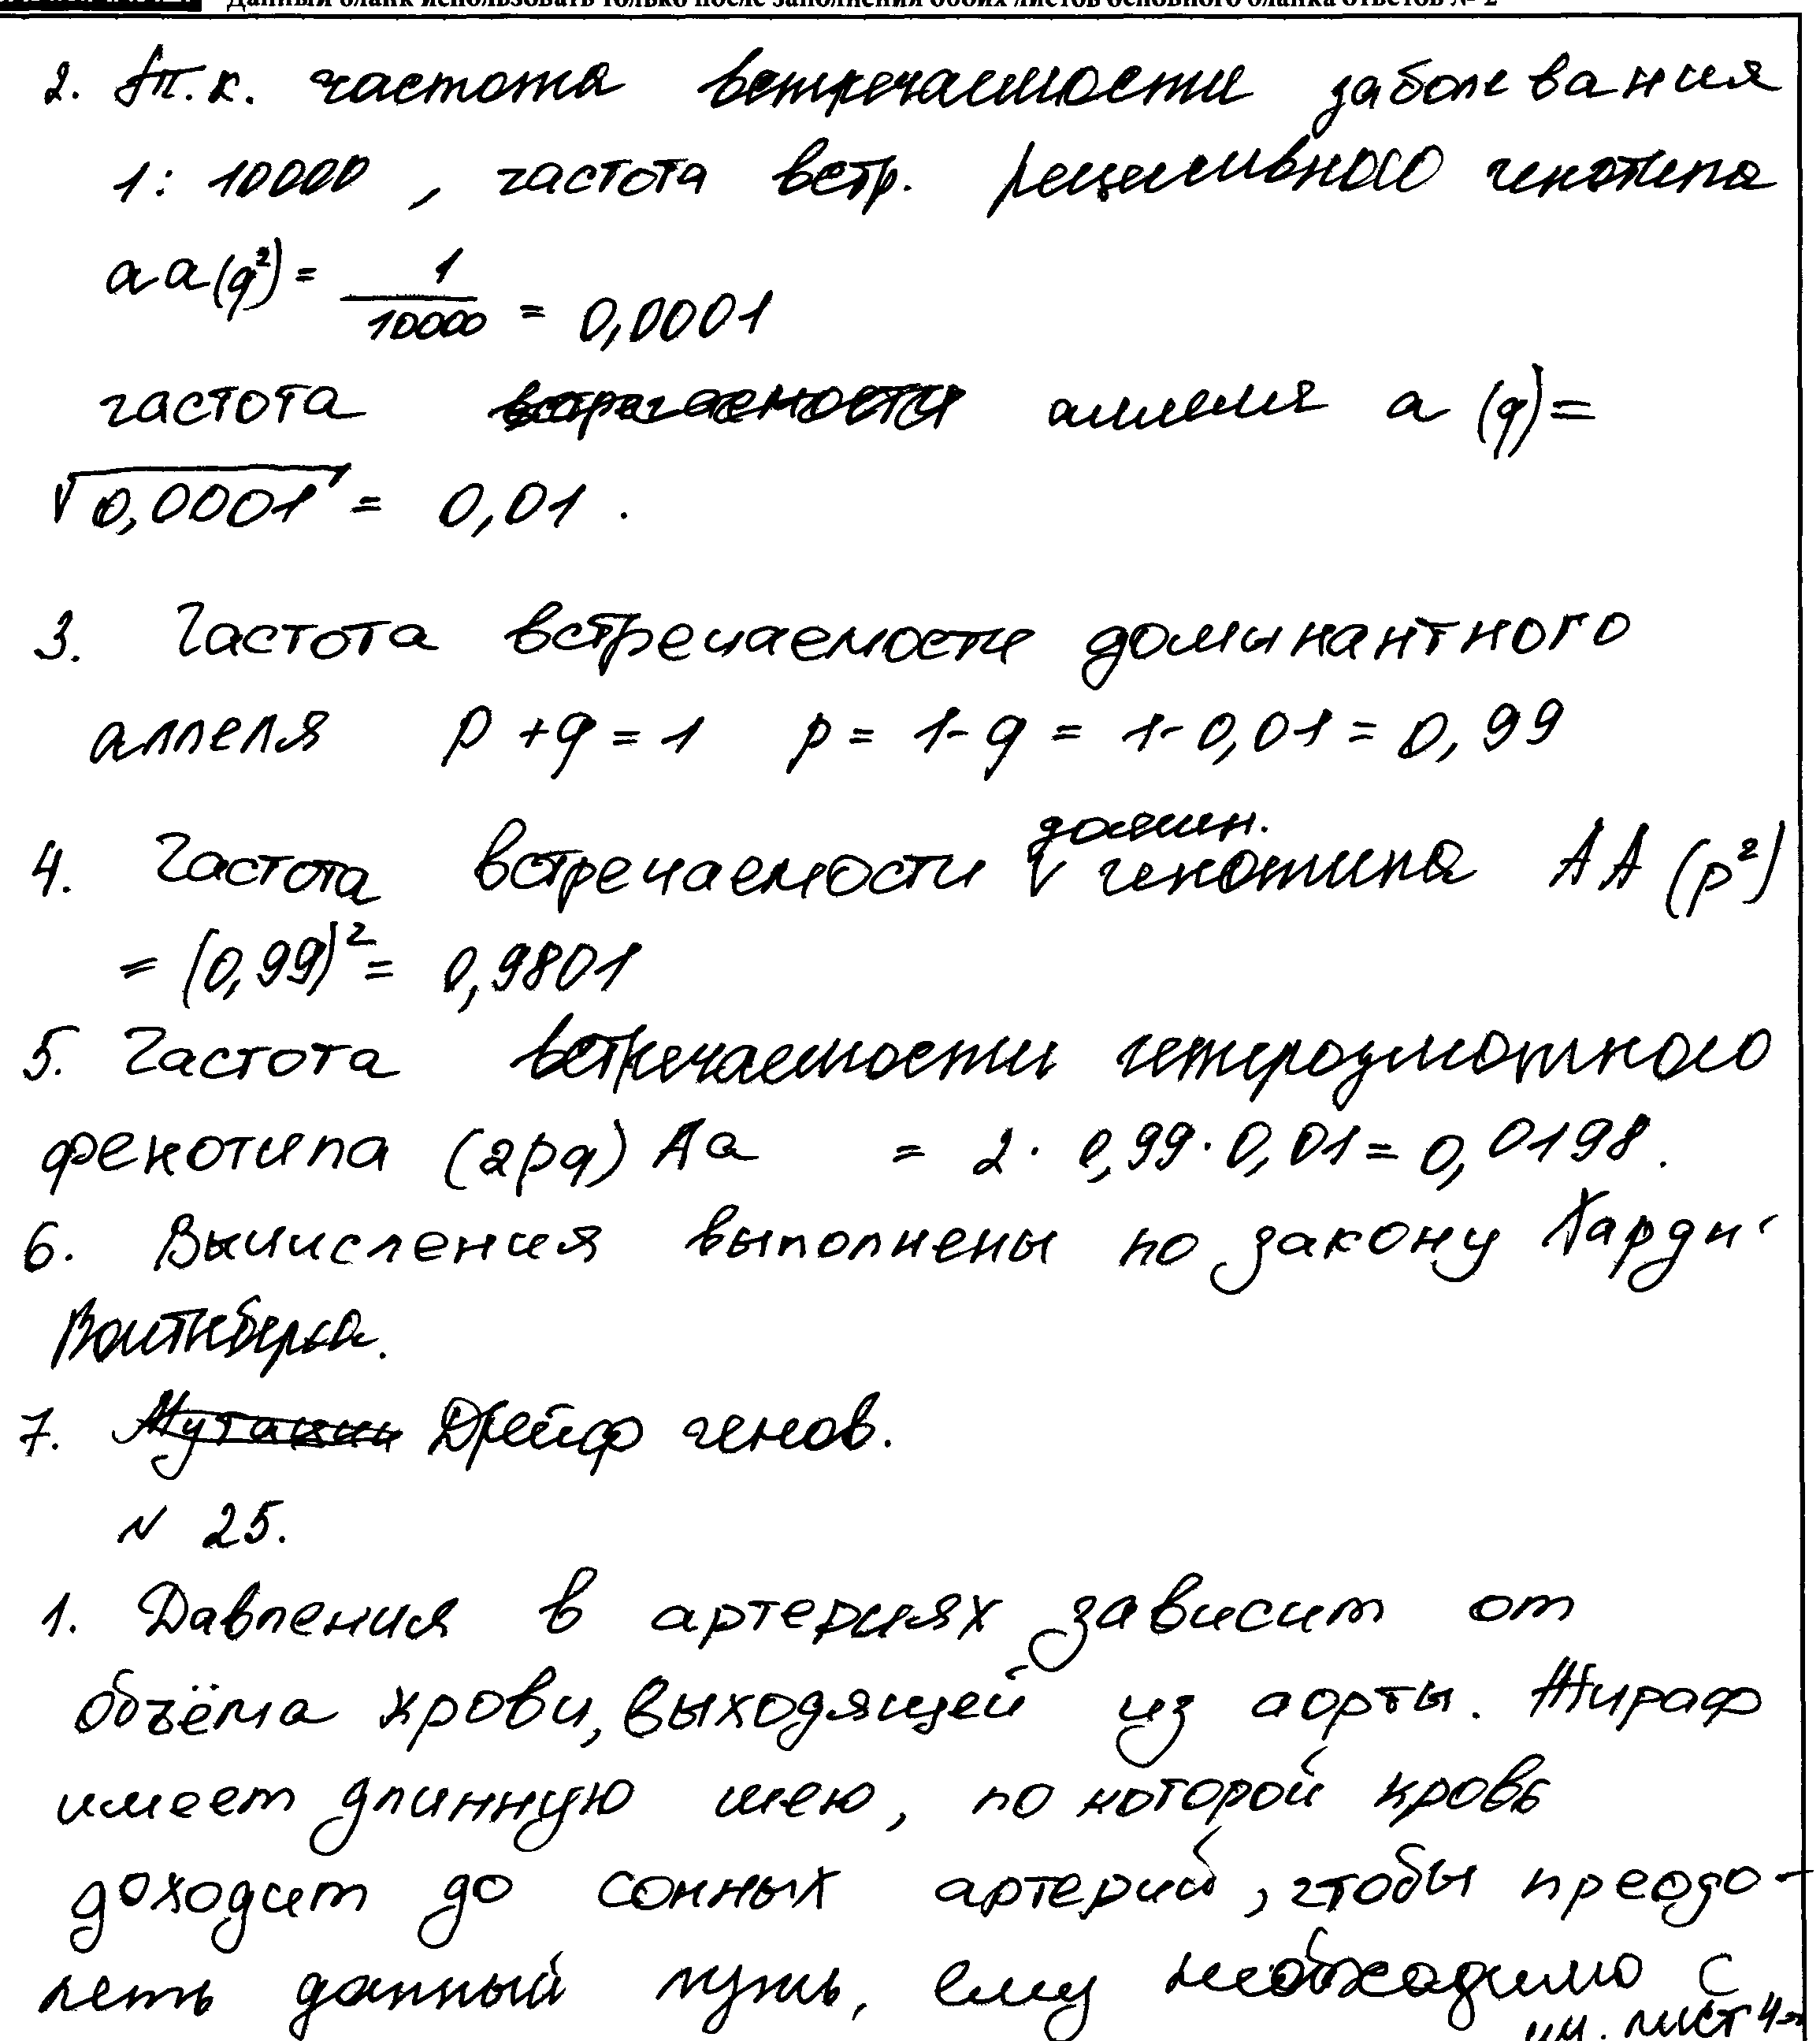 Данный бланк использовать только после заполнения обоих листов основного бланка ответов № 2
2. Т.к. частота встречаемости заболевания
1: 10000, частота встр. рецессивного генотипа
аа(q²) = 1/10000 = 0,0001
частота встречаемости аллеля а (q) =
√0,0001 = 0,01.
3. Частота встречаемости доминантного
аллеля p + q = 1 p = 1 - q = 1 - 0,01 = 0,99
домин.
4. Частота встречаемости V генотипа АА (p²)
= (0,99)² = 0,9801
5. Частота встречаемости гетерозиготного
фенотипа (2pq) Аа = 2 · 0,99 · 0,01 = 0,0198.
6. Вычисления выполнены по закону Харди-
Вайнберга.
7. Мутации Дрейф генов.
N 25.
1. Давления в артериях зависит от
объёма крови, выходящей из аорты. Жираф
имеет длинную шею, по которой кровь
доходит до сонных артерий, чтобы преодо-
леть данный путь, ему необходимо с
лист 4